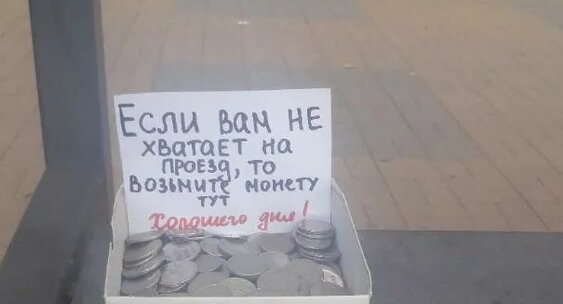 Если вам не
хватает на
проезд, то
возьмите монету
тут
Хорошего дня!